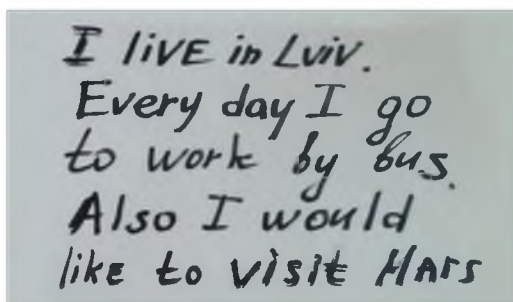 I live in Lviv.
Every day I go
to work by bus.
Also I would
like to visit Mars